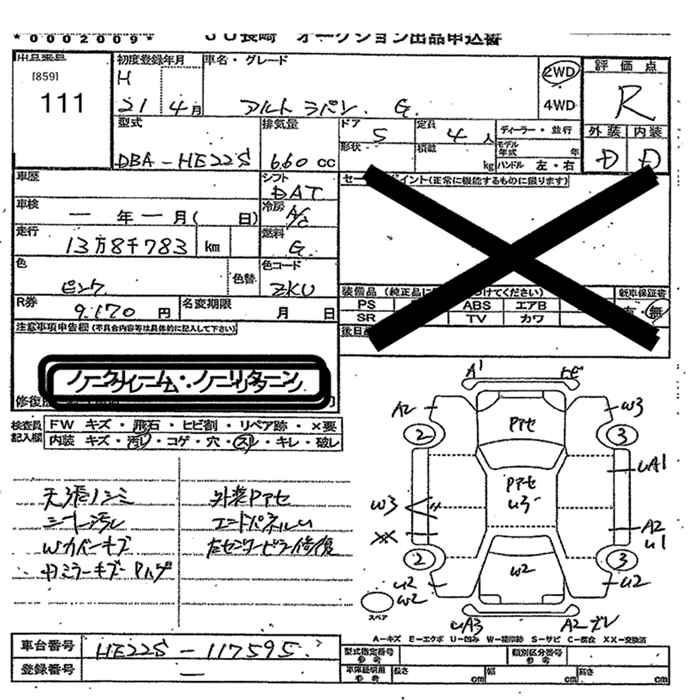 *0002009*
JU長崎 オークション出品申込書
出品番号
[859]
111
初度登録年月
H
21 4月
車名・グレード
アルト ラパン. G.
2WD
4WD
評価点
R
外装 内装
D D
型式
DBA-HE22S
排気量
660 CC
ドア
5
形状
定員
4 人
積載
kg
ディーラー・並行
モデル年式 年
ハンドル 左・右
車歴
シフト
DAT
車検
一 年 一 月( 日)
冷房
A/C
走行
13万8千783 km
燃料
G
色
ピンク
色替
色コード
ZKU
R券
9.170 円
名変期限 月 日
セールスポイント(正常に機能するものに限ります)
装備品(純正品に けてください)
新車保証書
PS ABS エアB
SR TV カワ
有・無
後日
注意事項申告欄(不具合内容等は具体的に記入して下さい)
ノークレーム・ノーリターン
修復歴
検査員記入欄
FW キズ・飛石・ヒビ割・リペア跡・×要
内装 キズ・汚レ・コゲ・穴・スレ・キレ・破レ
天張ノシミ
シート汚レ
Wカバーキズ
外装Pアセ
エンドパネルU
左センターピラー修復
A1
A2
W3
2
3
Pアセ
Pアセ
U3
UA1
W3
XX
A2
U1
2
3
U2
W2
W2
U2
UA3
A2 ズレ
スペア
A-キズ E-エクボ U-凹み W-補修跡 S-サビ C-腐食 XX-交換済
車台番号
HE22S-117595
登録番号
一
型式指定番号
参考
類別区分番号
参考
車庫証明用
参考
長さ cm
幅 cm
高さ cm